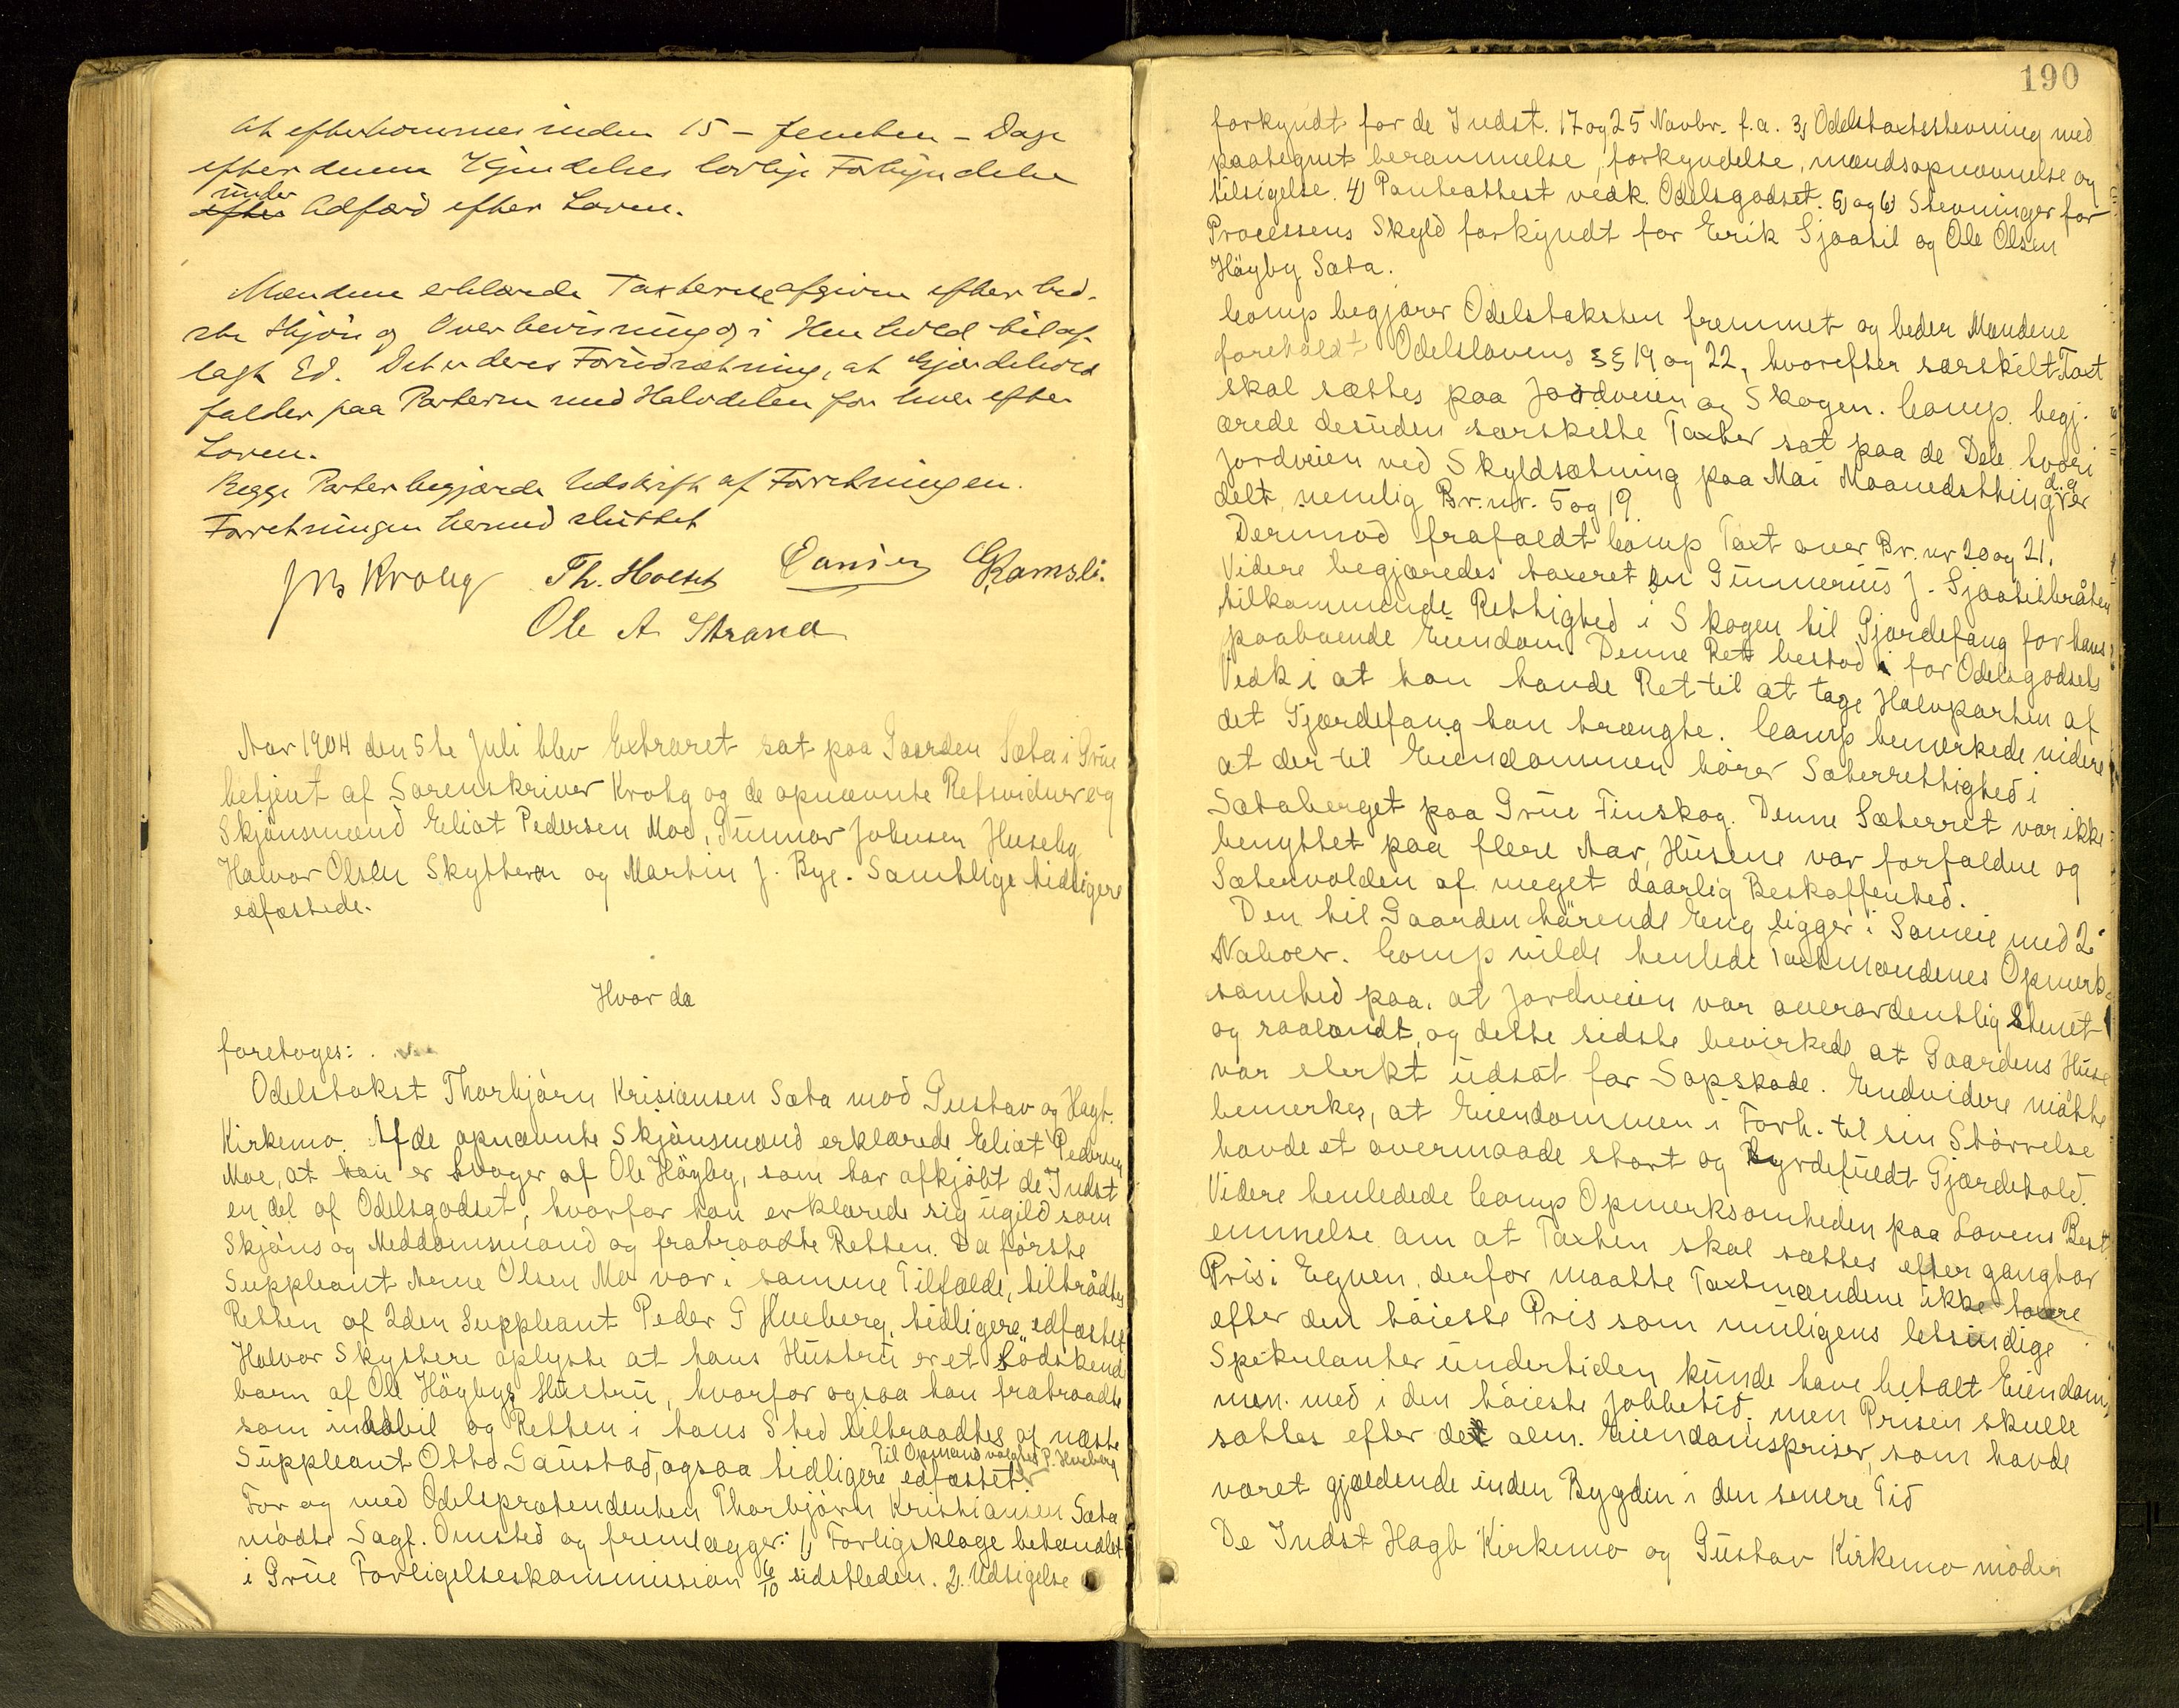 At efterkommes inden 15 – femten – Dage
efter denne Kjendelses lovlige Forkyndelse
under
efter Adfærd efter Loven.
Mændene erklærede Taxterne afgivne efter bed-
ste Skjøn og Overbevisning og i Henhold til af-
lagt Ed. Det er deres Forudsætning, at Gjærdehold
falder paa Parterne med Halvdelen for hver efter
Loven.
Begge Parter begjærde Udskrift af Forretningen.
Forretningen hermed sluttet
Krohg Th. Holset G Ramsli.
Ole A Strand
Aar 1904 den 5te Juli blev Extraret sat paa Gaarden Sæta i Grue
betjent af Sorenskriver Krohg og de opnævnte Retsvidner og
Skjönsmænd Eliat Pedersen Moe, Gunnar Johnsen Huseby
Halvor Olsen Skyttern og Martin J. Bye. Samtlige tidligere
edfæstede.
Hvor da
foretoges:
Odelstakst Thorbjörn Krisiansen Sæta mod Gustav og Hagb.
Kirkemo. Af de opnævnte Skjönsmænd erklærede Eliat Pedersen
Moe, at han er Svoger af Ole Högby, som har afkjöbt de Indst
en del af Odelsgodset, hvorfor han erklærede sig ugild som
Skjöns og Meddomsmand og fratraadte Retten. Da förste
Suppleant Arne Olsen Mo var i samme Tilfælde, tiltrådtes
Retten af 2den Suppleant Peder G Hueberg, tidligere edfæstet
Halvor Skyttere oplyste at hans Hustru er et Södskende
barn af Ole Högbys Hustru, hvorfor ogsaa han fratraadte
som inhabil og Retten i hans Sted tiltraadtes af næste
Til Opmand valgtes P. Hueberg
Suppleant Otto Gaustad, ogsaa tidligere edfæstet.
For og med Odelsprætendenten Thorbjörn Kristiansen Sæta
mödte Sagf. Omsted og fremlægger: 1) Forligsklage behandlet
i Grue Forligelseskommission 6/10 sidstleden. 2) Udsigelse
190
forkyndt for de Indst. 17 og 25 Novbr. f.a. 3) Odelstaxtstevning med
paategnet berammelse, forkyndelse, mændsopnævnelse og
tilsigelse. 4) Panteattest vedk. Odelsgodset. 5) og 6) Stevninger for
Processens Skyld forkyndt for Erik Sjaatil og Ole Olsen
Högby Sæta.
Comp begjærer Odelstaksten fremmet og beder Mændene
foreholdt Odelslovens §§ 19 og 22, hvorefter særskilt Taxt
skal sættes paa Jordveien og Skogen. Comp. begj-
ærede desuden særskilte Taxter sat paa de Dele hvori
Jordveien ved Skyldsætning paa Mai Maanedsthing d.a. er
delt, nemlig Br.nr. 5 og 19.
Derimod frafaldt Comp Taxt over Br.nr 20 og 21.
Videre begjæredes taxeret en Gunnerius J. Sjaatilbråten
tilkommende Rettighed i Skogen til Gjærdefang for hans
paaboende Eiendom. Denne Ret bestod for Odelsgodsets
Vedk i at han havde Ret til at tage Halvparten af
det Gjærdefang han trængte. Comp bemerkede videre
at der til Eiendommen hörer Sæterrettighed i
Sætaberget paa Grue Finskog. Denne Sæterret var ikke
benyttet paa flere Aar, Husene var forfaldne og
Sætervolden af meget daarlig Beskaffenhed.
Den til Gaarden hörende Eng ligger i Sameie med 2
Naboer. Comp vilde henlede Taxtmændenes Opmerk-
somhed paa, at Jordveien var overordentlig stenet
og raalændt, og dette sidste bevirkede at Gaardens Huse
var sterkt udsat for Sopskade. Endvidere måtte
bemerkes, at Eiendommen i Forh. til sin Störrelse
havde et overmaade stort og byrdefuldt Gjærdehold.
Videre henledede Comp Opmerksomheden paa Lovens Best
emmelse om at Taxten skal sættes efter gangbar
Pris i Egnen, derfor maatte Taxtmændene ikke taxere
efter den höieste Pris som muligens letsindige
Spekulanter undertiden kunde have betalt Eiendom-
men med i den höieste Jobbetid, men Prisen skulle
sættes efter de alm. Eiendomspriser, som havde
været gjældende inden Bygden i den senere Tid
De Indst Hagb Kirkemo og Gustav Kirkemo möder